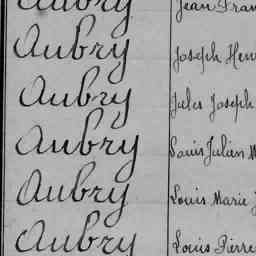 Aubry Jean Fran
Aubry Joseph Hen
Aubry Jules Joseph
Aubry Louis Julien M
Aubry Louis Marie J
Aubry Louis Pierre